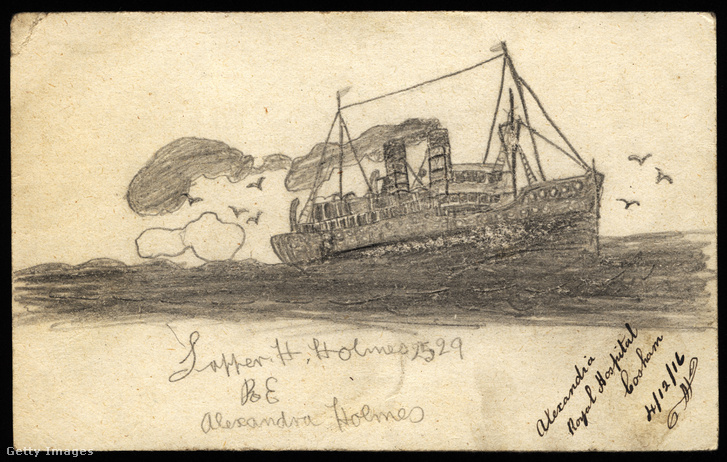 Sapper. H. Holmes 2529
R E
Alexandra Holmes
Alexandria
Royal Hospital
Cosham
4/12/16
Getty Images